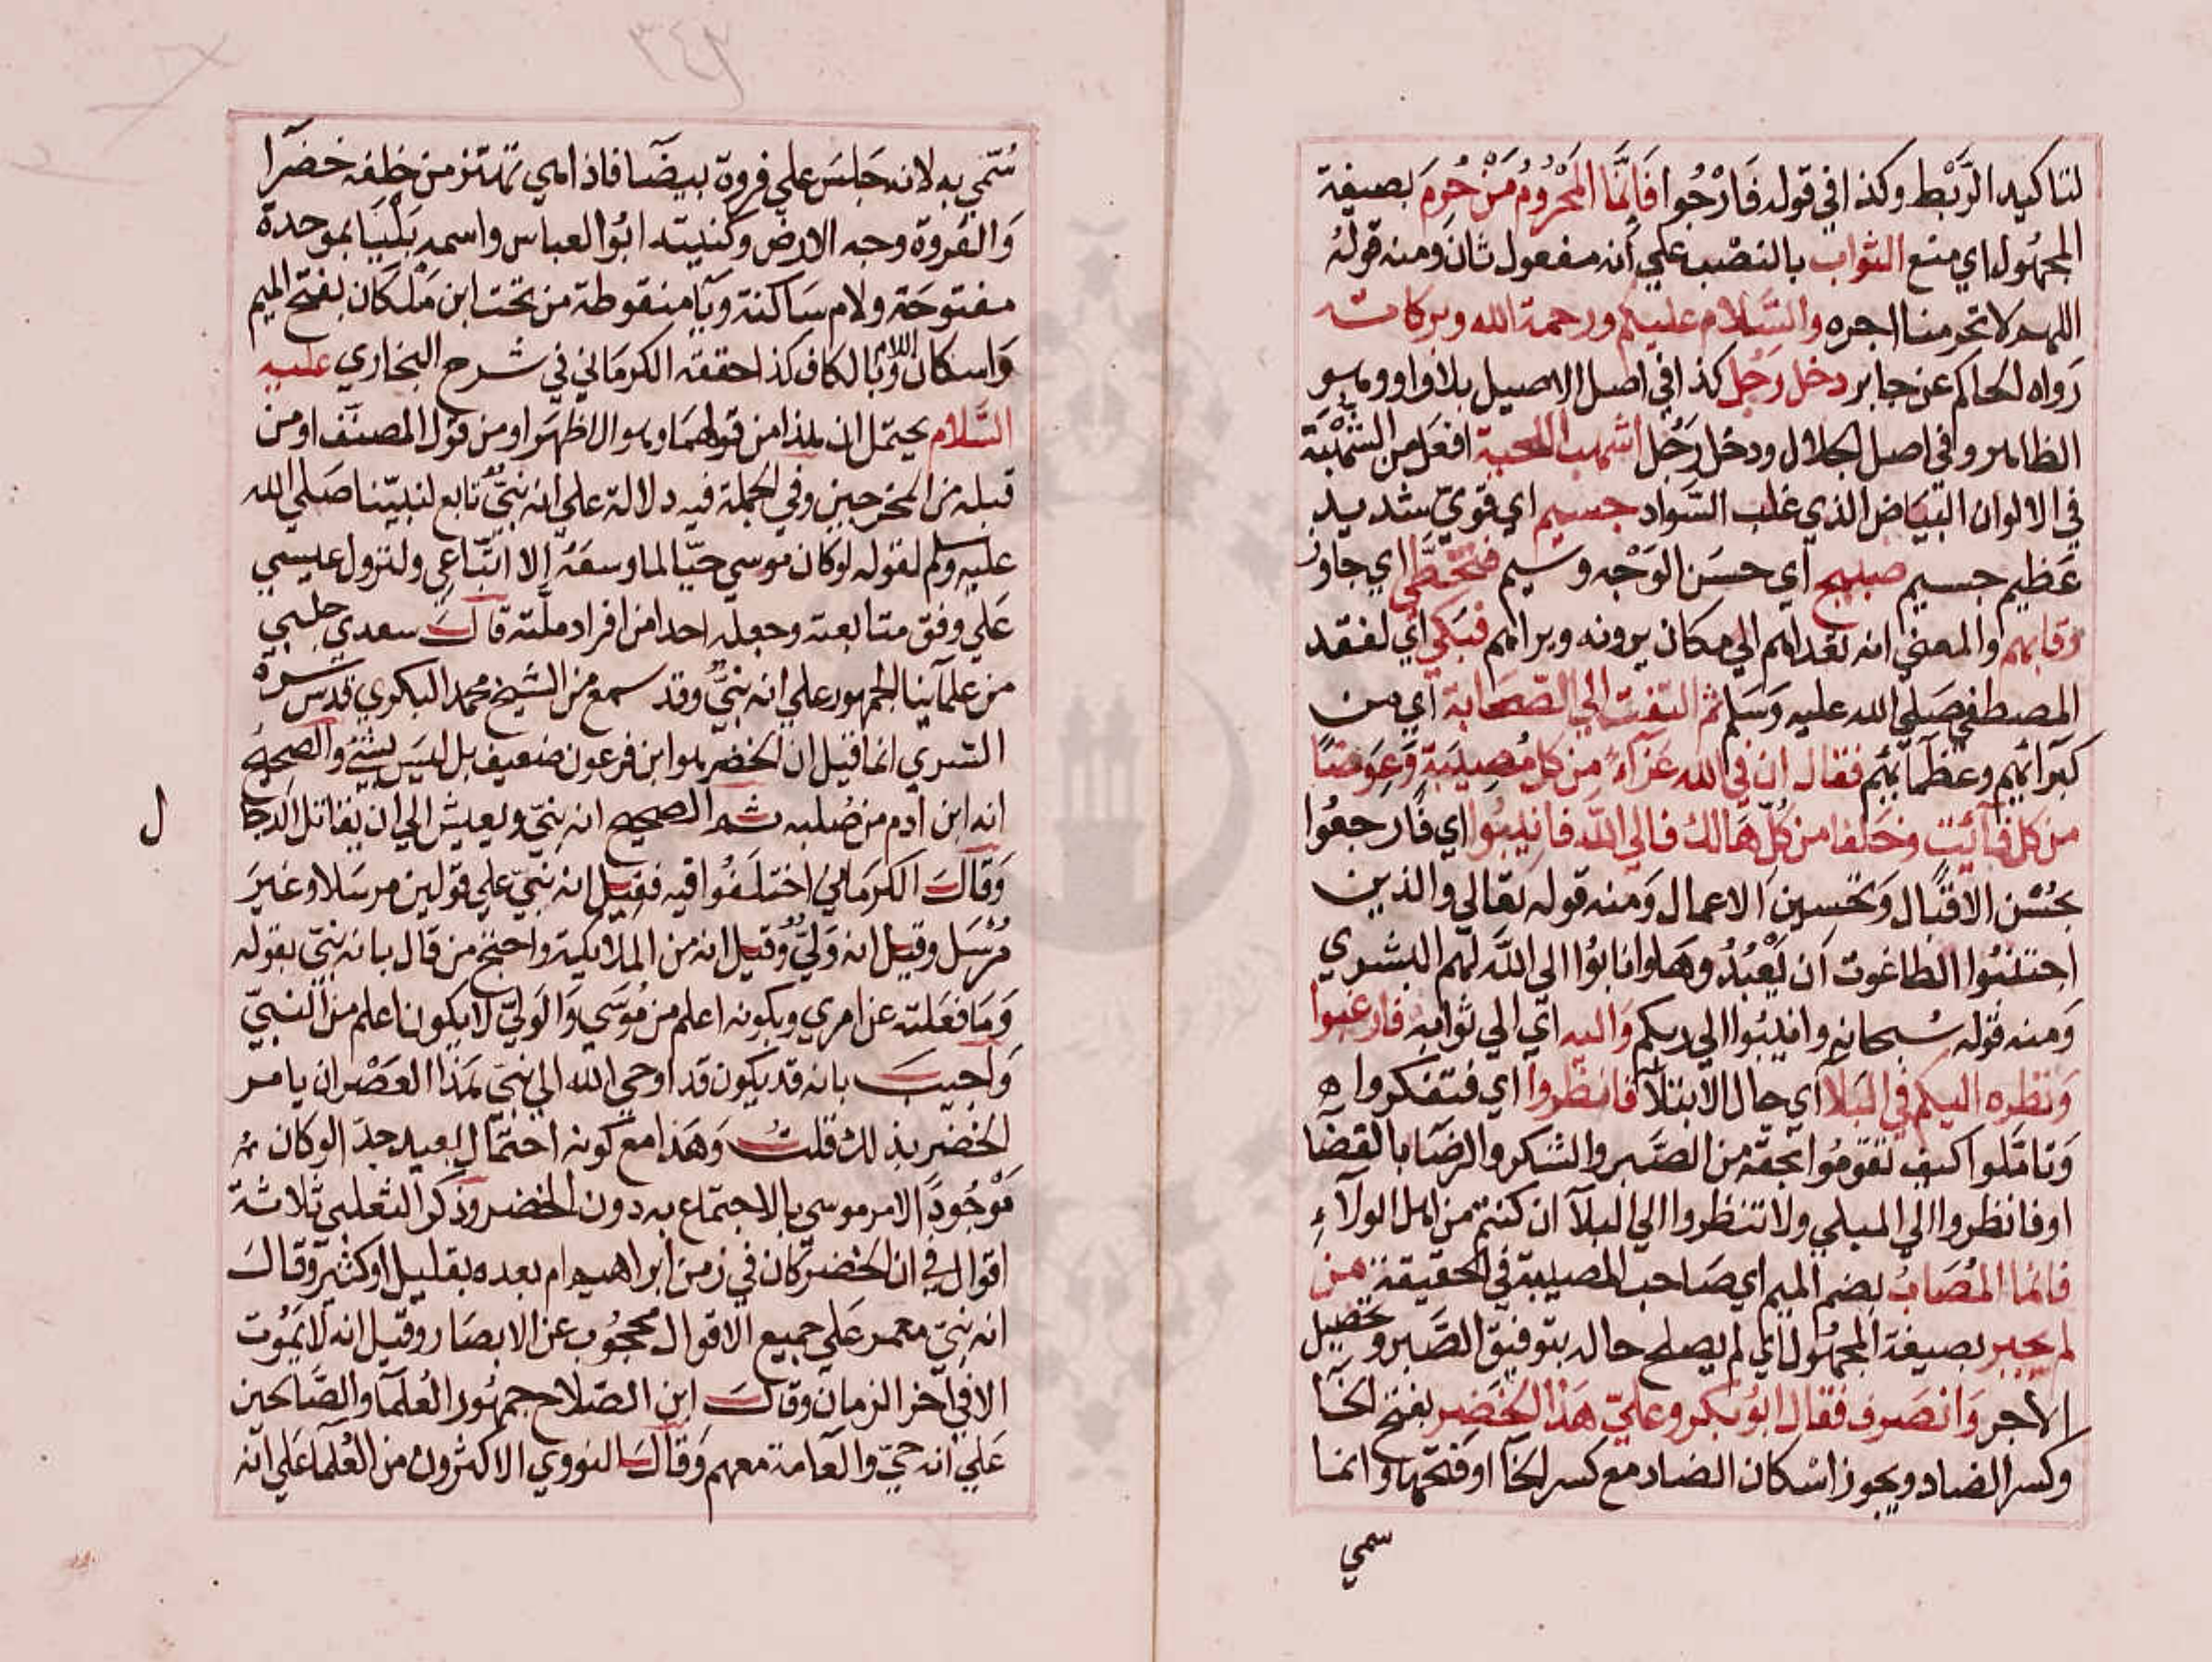 لتاكيد الربط وكذا في قوله فَارْجُوا فَاِنَّمَا المَحْرُومُ مَنْ حُرِمَ بصيغة
المجهول اي منع الثواب بالنصب علي أنه مفعول ثان ومنه قوله
اللهم لا تحرمنا اجره والسَّلام عليكم ورحمة الله وبركاته
رَواه الحاكم عن جابر دخل رَجُل كذا في اصل الاصيل بلا واو وهو
الظاهر وفي اصل الجلال ودخل رَجُل اشهب اللحية افعل من الشهْبَة
في الالوان البيَاض الذي غلب السَّواد جسيم اي قويّ شديد
عَظيم جسيم صبيح اي حسَن الوَجْه وسيم فتخطَّي اي جاوز
رقابهم والمعني انه تقدامهم الي مكان يرونه ويراهم فبَكي اي لفقد
المصطفي صَلي الله عليه وَسَلم ثم التفت الي الصّحَابة اي من
كبرآئهم وعظمآئهم فقال ان في الله عَزآءً من كل مُصِيبَةٍ وَعِوَضًا
من كل فآئت وخَلفا من كُلّ هَالك فالي الله فانيبُوا اي فَارجعُوا
بحُسْن الاقبَال وَتحسين الاعمال وَمنه قوله تعالي والذين
اجتنبُوا الطاغوت اَن يَعْبُدُوهَا وانابُوا الي اللَّه لهم البشري
وَمنه قوله سُبحانه وانيبُوا الي ربكم وَاليه اي الي ثوابه فارغبوا
وَنظره اليكم في البَلا اي حال الابتلآ فانظروا اي فتفكروا
وَتامّلوا كيف تقومُوا بحقه من الصَّبر والشكر والرضَا بالقضَا
او فانظروا الي المبلي ولا تنظروا الي البلآ ان كنتم من اهل الولآءِ
فانما المُصَابُ بضم الميم اي صَاحب المصيبة في الحقيقة من
لم يجبر بصيغة المجهُول اي لم يصلح حاله بتوفيق الصَّبر وتحصيل
الاجر وَانصَرف فقال ابُو بَكر وعليّ هَذا الخَضِر بفتح الخآ
وكسر الضاد ويجوز اسْكان الضاد مع كسر الخآ او فتحها وانما
سمي
٣٤٣
سُمّي به لانه جَلسَ علي فروة بيضَآ فاذا هي تهتز من خلفه خضرآ
وَالفروة وجه الارض وكنيته ابُوا العباس واسمه بَلْيَا بموحدة
مفتوحَة ولام سَاكنة ويآ منقوطة من تحت ابن مَلْكَان بفتح الميم
وَاسكان اللام وبالكاف كذا حققه الكرمَاني في شرح البخاري عليه
السَّلام يحتمل ان هذا من قولهمَا وهو الاظهَر او من قول المصنّف او من
قبله من المخرجين وفي الجملة فيه دلالة علي انه نبيٌّ تابع لنبيّنا صَلي الله
عليه وسلم لقوله لو كان موسي حيّا لما وسعَهُ إلا اتّبَاعي ولنزول عيسي
عَلي وفق متابعته وجعله احدا من افراد ملّته قالَ سعدي جلبي
من علمآينا الجمهور علي انه نبيٌّ وقد سمع من الشيخ محمد البكوي قدس سره
السَري انما قيل ان الخضر هوا ابن فرعون ضعيف بل ليسَ بشئ والصحيح
انه ابن آدم من صُلبه ثم الصحيح انه نبيّ ويعيش الي ان يقاتل الدجا
ل
وَقالَ الكرمَاني اختلَفُوا فيه فقيل انه نبيّ علي قولين مرسَلا وغيرَ
مُرْسَل وقيل انه وَليٌّ وقيل انه من الملآيكة واحتج من قال بانه نبيّ بقوله
وَمَا فعَلته عن امري وبكونه اعلم من مُوسَي وَالوَليّ لا يكون اعلم من النبيّ
وَاجيبَ بانه قد يكون قد اوحي الله الي نبيّ هَذا العَصْر ان يامر
الخضر بذلك قلتُ وَهَذا مع كونه احتمَال بعيد جدّا لو كان ثمه
مَوْجُودا لامر موسي بالاجتماع به دون الخضر وَذكر الثعلبي ثلاثة
اقوال في ان الخضر كان في زمن ابراهيم ام بعده بقليل او كثير وَقالَ
انه نبيّ معمر عَلي جميع الاقوال محجُوب عن الابصَار وقيل انه لا يمُوت
الا في آخر الزمان وقالَ ابن الصّلاح جمهُور العُلمَآ والصَّالحين
عَلي انه حيّ والعَامة معهم وَقالَ النووي الاكثرون من العُلمآ عَلي انّه